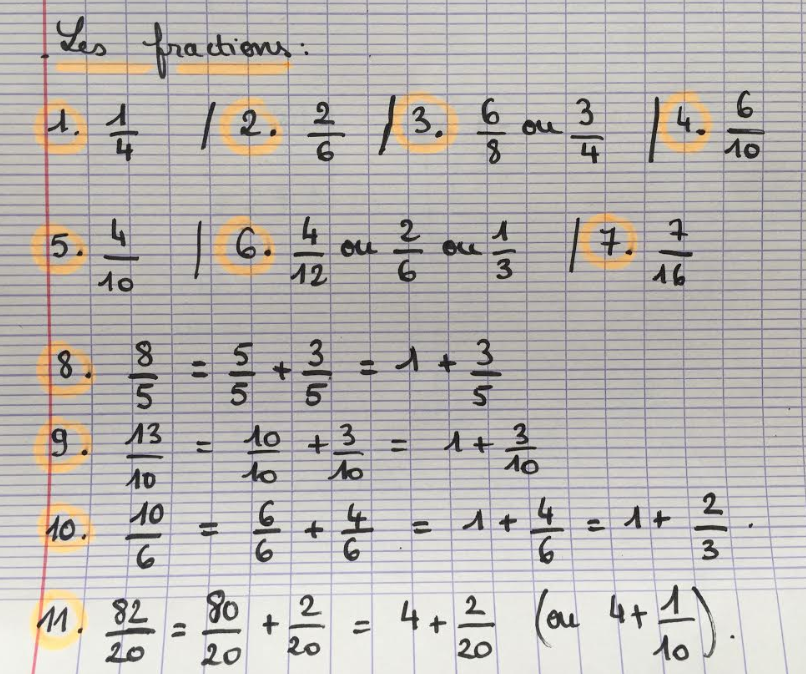 Les fractions:
1. 1/4 | 2. 2/6 | 3. 6/8 ou 3/4 | 4. 6/10
5. 4/10 | 6. 4/12 ou 2/6 ou 1/3 | 7. 7/16
8. 8/5 = 5/5 + 3/5 = 1 + 3/5
9. 13/10 = 10/10 + 3/10 = 1 + 3/10
10. 10/6 = 6/6 + 4/6 = 1 + 4/6 = 1 + 2/3.
11. 82/20 = 80/20 + 2/20 = 4 + 2/20 (ou 4 + 1/10).